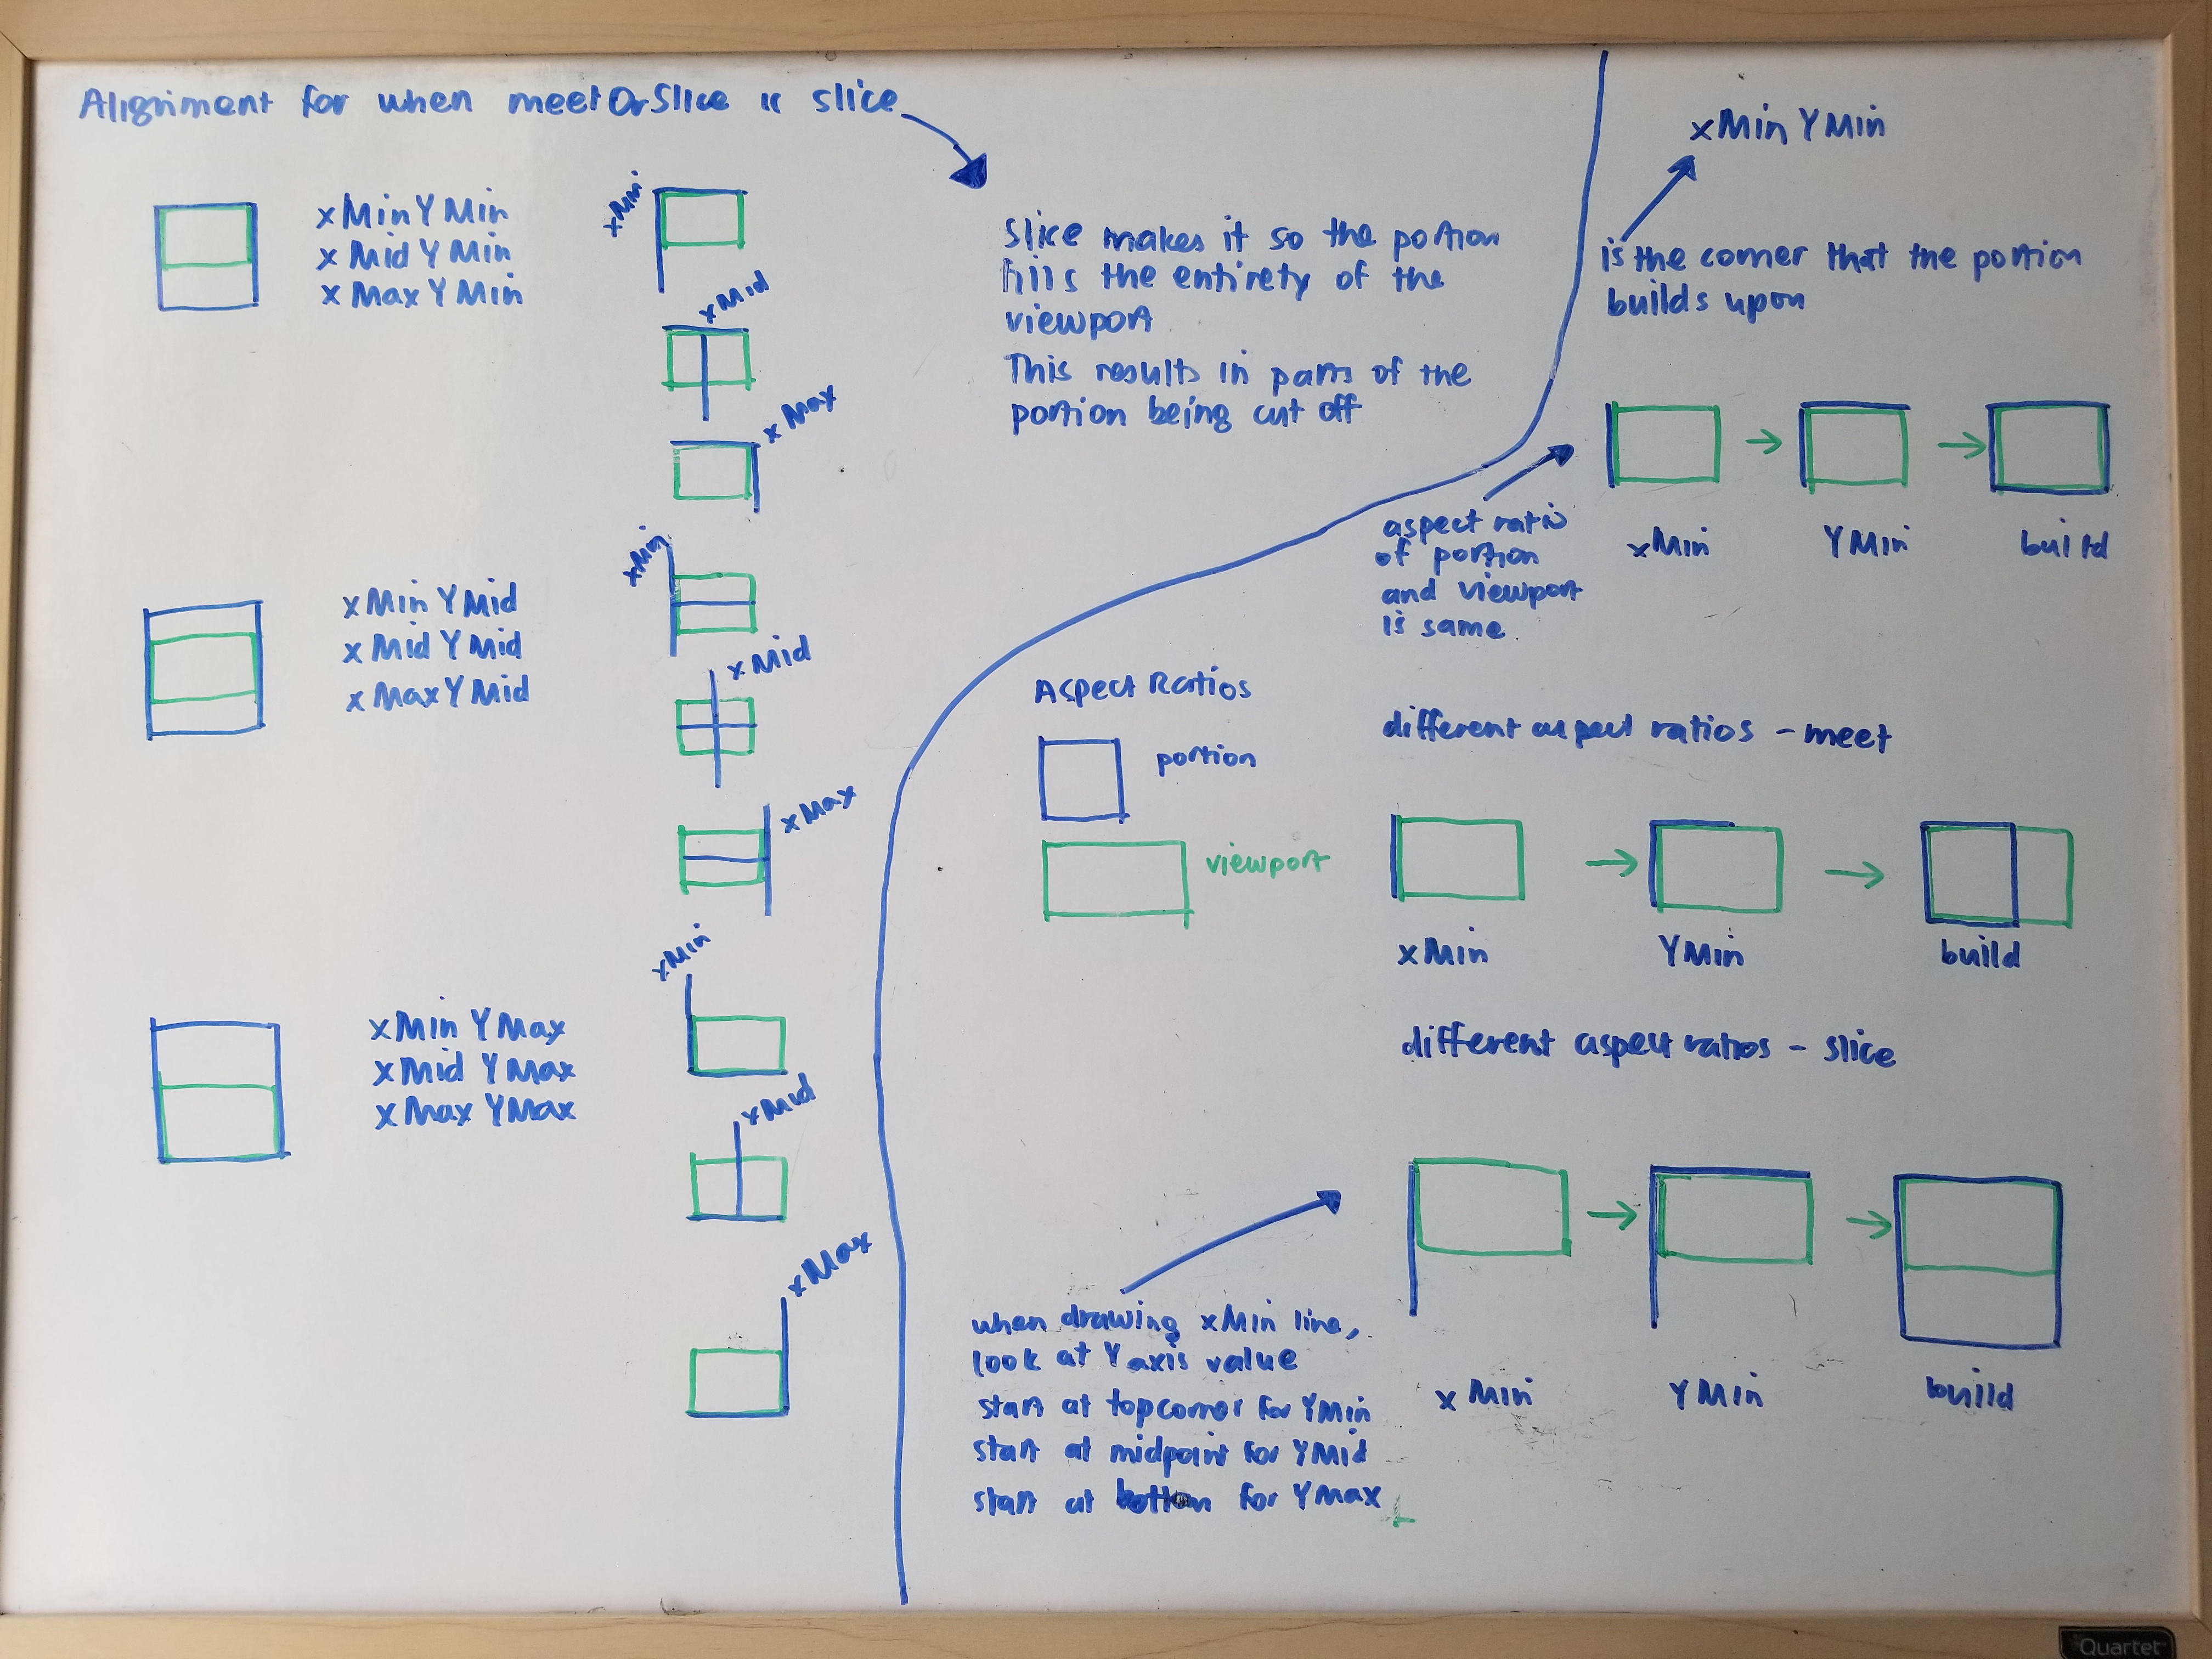 Alignment for when meetOrSlice is slice
xMinYMin
xMidYMin
xMaxYMin
xMin
xMid
xMax
xMinYMid
xMidYMid
xMaxYMid
xMin
xMid
xMax
xMinYMax
xMidYMax
xMaxYMax
xMin
xMid
xMax
slice makes it so the portion
fills the entirety of the
viewport
This results in parts of the
portion being cut off
xMinYMin
is the corner that the portion
builds upon
aspect ratio
of portion
and viewport
is same.
xMin YMin build
Aspect Ratios
portion
viewport
different aspect ratios - meet
xMin YMin build
different aspect ratios - slice
xMin YMin build
when drawing xMin line,
look at Y axis value
start at top corner for YMin
start at midpoint for YMid
start at bottom for YMax
Quartet